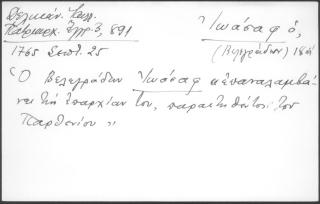 Δελικάν. Ἐκκλ.
Πατριαρχ. Ἔγγρ. 3, 891
1765 Σεπτ. 25
Ἰωάσαφ ὁ,
(Βελεγράδων) 18
Ὁ Βελεγράδων Ἰωάσαφ ἐπαναλαμβά-
νει τὴν ἐπαρχίαν του, παραιτηθέντος τοῦ
Παρθενίου „